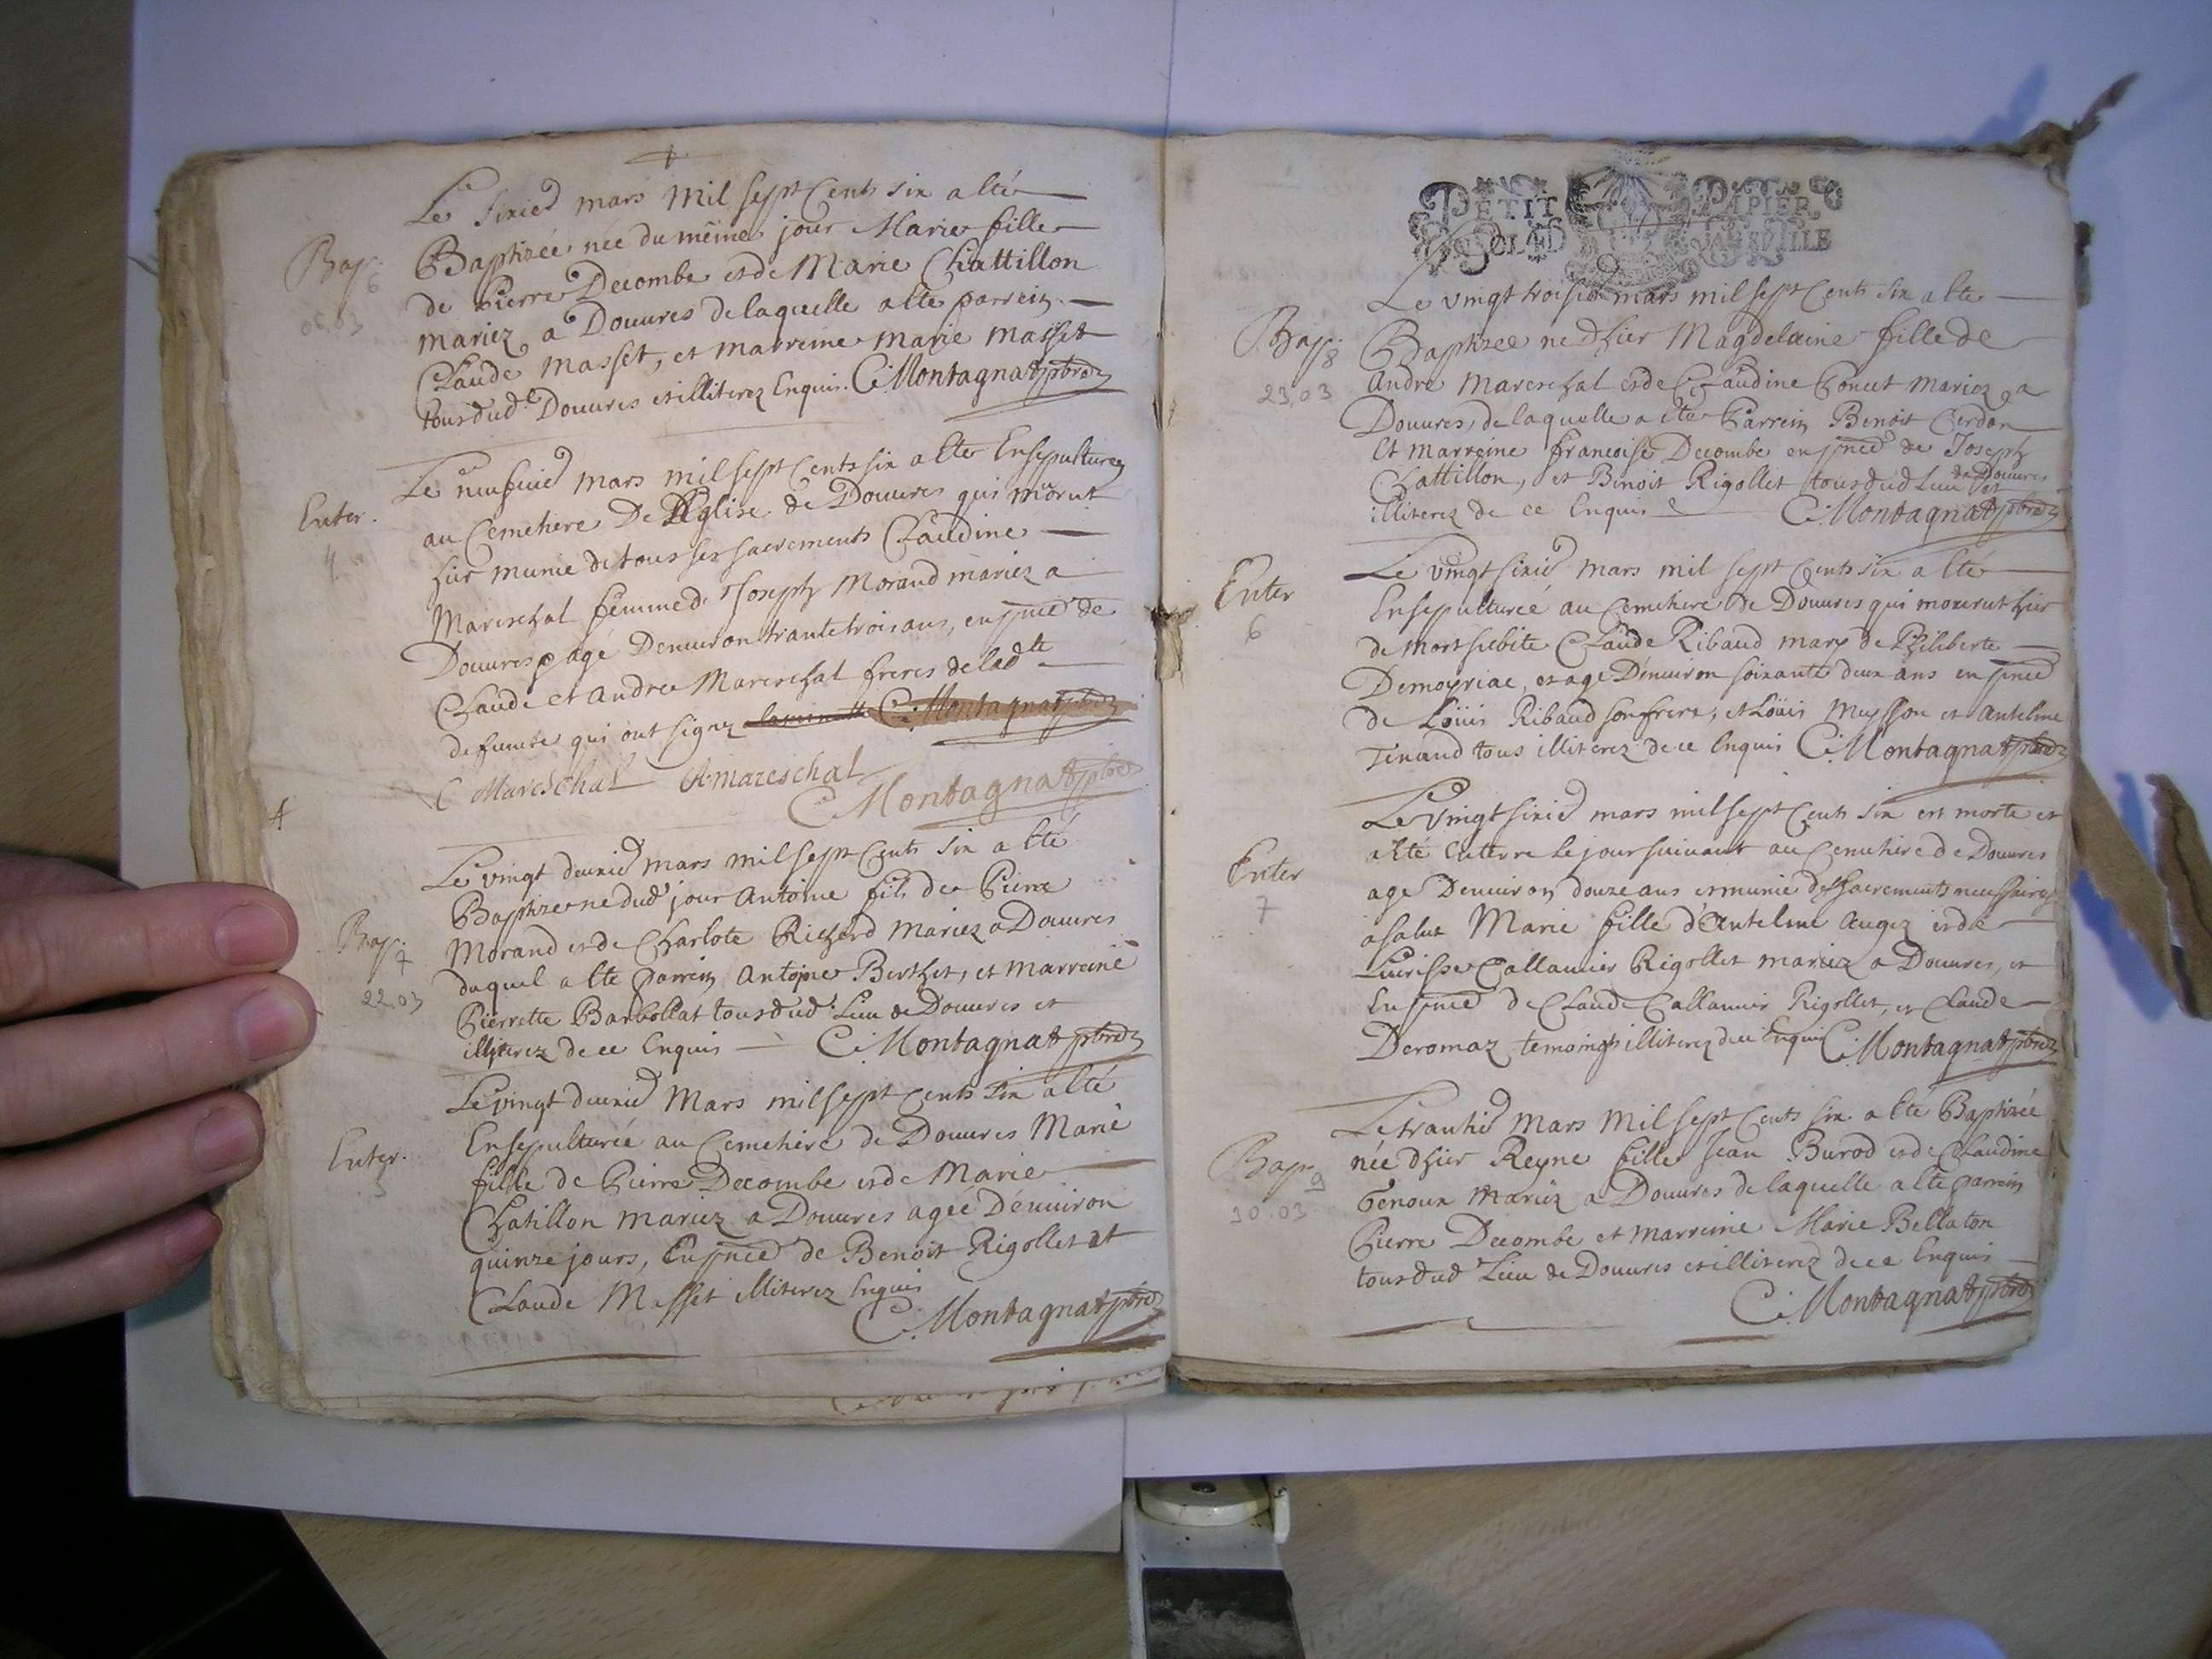 Le sixied mars mil sept Cents six a Eté
Bap. 6
06.03
Baptizée née du même jour Marie fille
de Pierre Decombe et de Marie Chattillon
mariez a Douures de laquelle a Eté parrein
Claude Masset, et marreine marie masset
tous dud. Douures et illiterez Enquis. C. Montagnat pbre
Enter.
4
Le neufuied mars mil sept Cents six a Eté Ensepulturez
au Cemetiere De l'Eglise de Douures qui mōrut
hier munie de tous ses sacrements Claudine
Mareschal femme de Joseph Morand mariez a
Douures agé Denuiron trante trois ans, en pnce de
Claude et Andre Mareschal freres de lad.te
defunte qui ont signez C. Montagnat pbre
C Mareschal A. mareschal
C. Montagnat pbre
Bap. 7
22.03
Le vingt deuxied mars mil sept Cents six a Eté
Baptize ne dud jour Antoine fils de Pierre
Morand et de Charlote Richard mariez a Douures
duquel a Eté parrein Antoine Berthet, et marreine
Pierrette Barbollat tous dud. Lieu de Douures et
illiterez de ce Enquis C. Montagnat pbre
Enter.
5
Le vingt deuxied Mars mil sept Cents six a Eté
Ensepulturée au Cemetiere de Douures Marie
fille de Pierre Decombe et de Marie
Chatillon mariez a Douures agée D'enuiron
quinze jours, En pnce de Benoit Rigollet et
Claude Masset illiterez Enquis
C. Montagnat pbre
PETIT PAPIER
Le vingt troisied mars mil sept Cents six a Ete
Bap. 8
23.03
Baptizee ne d'hier Magdelaine fille de
Andre Mareschal et de Claudine Mariez a
Douures, de laquelle a Eté Parrein Benoit Cerdon
Et marreine francoise Decombe en pnce de Joseph
Chattillon, et Benoit Rigollet tous dud Lieu de Douures et
illiterez de ce Enquis C. Montagnat pbre
Enter
6
Le vingt sixied mars mil sept Cents six a Eté
Ensepulturée au Cemetiere de Douures qui mourut hier
de mort subite Claude Ribaud mary de Philiberte
Demoyriac, et age D'enuiron soixante deux ans en pnce
de Loüis Ribaud son frere, et Loüis Musson et Antelme
Tenand tous illiterez de ce Enquis C. Montagnat pbre
Enter
7
Le vingt sixied mars mil sept Cents six est morte et
a Eté Enterre le jour suiuant au Cemetiere de Douures
age Denuiron douze ans et munie des sacrements necessaires
a salut Marie fille d'Antelme Augez et de
Callamier Rigollet mariez a Douures, et
En pnce de Claude Callamier Rigollet, et Claude
Deromaz temoings illiterez de ce Enquis C. Montagnat pbre
Bap. 9
30.03
Le trantied Mars Mil sept Cents six a Eté Baptizée
née d'hier Reyne fille Jean Burod et de Claudine
Genoux Mariez a Douures de laquelle a Eté parrein
Pierre Decombe et marreine Marie Bellaton
tous dud Lieu de Douures et illiterez de ce Enquis
C. Montagnat pbre